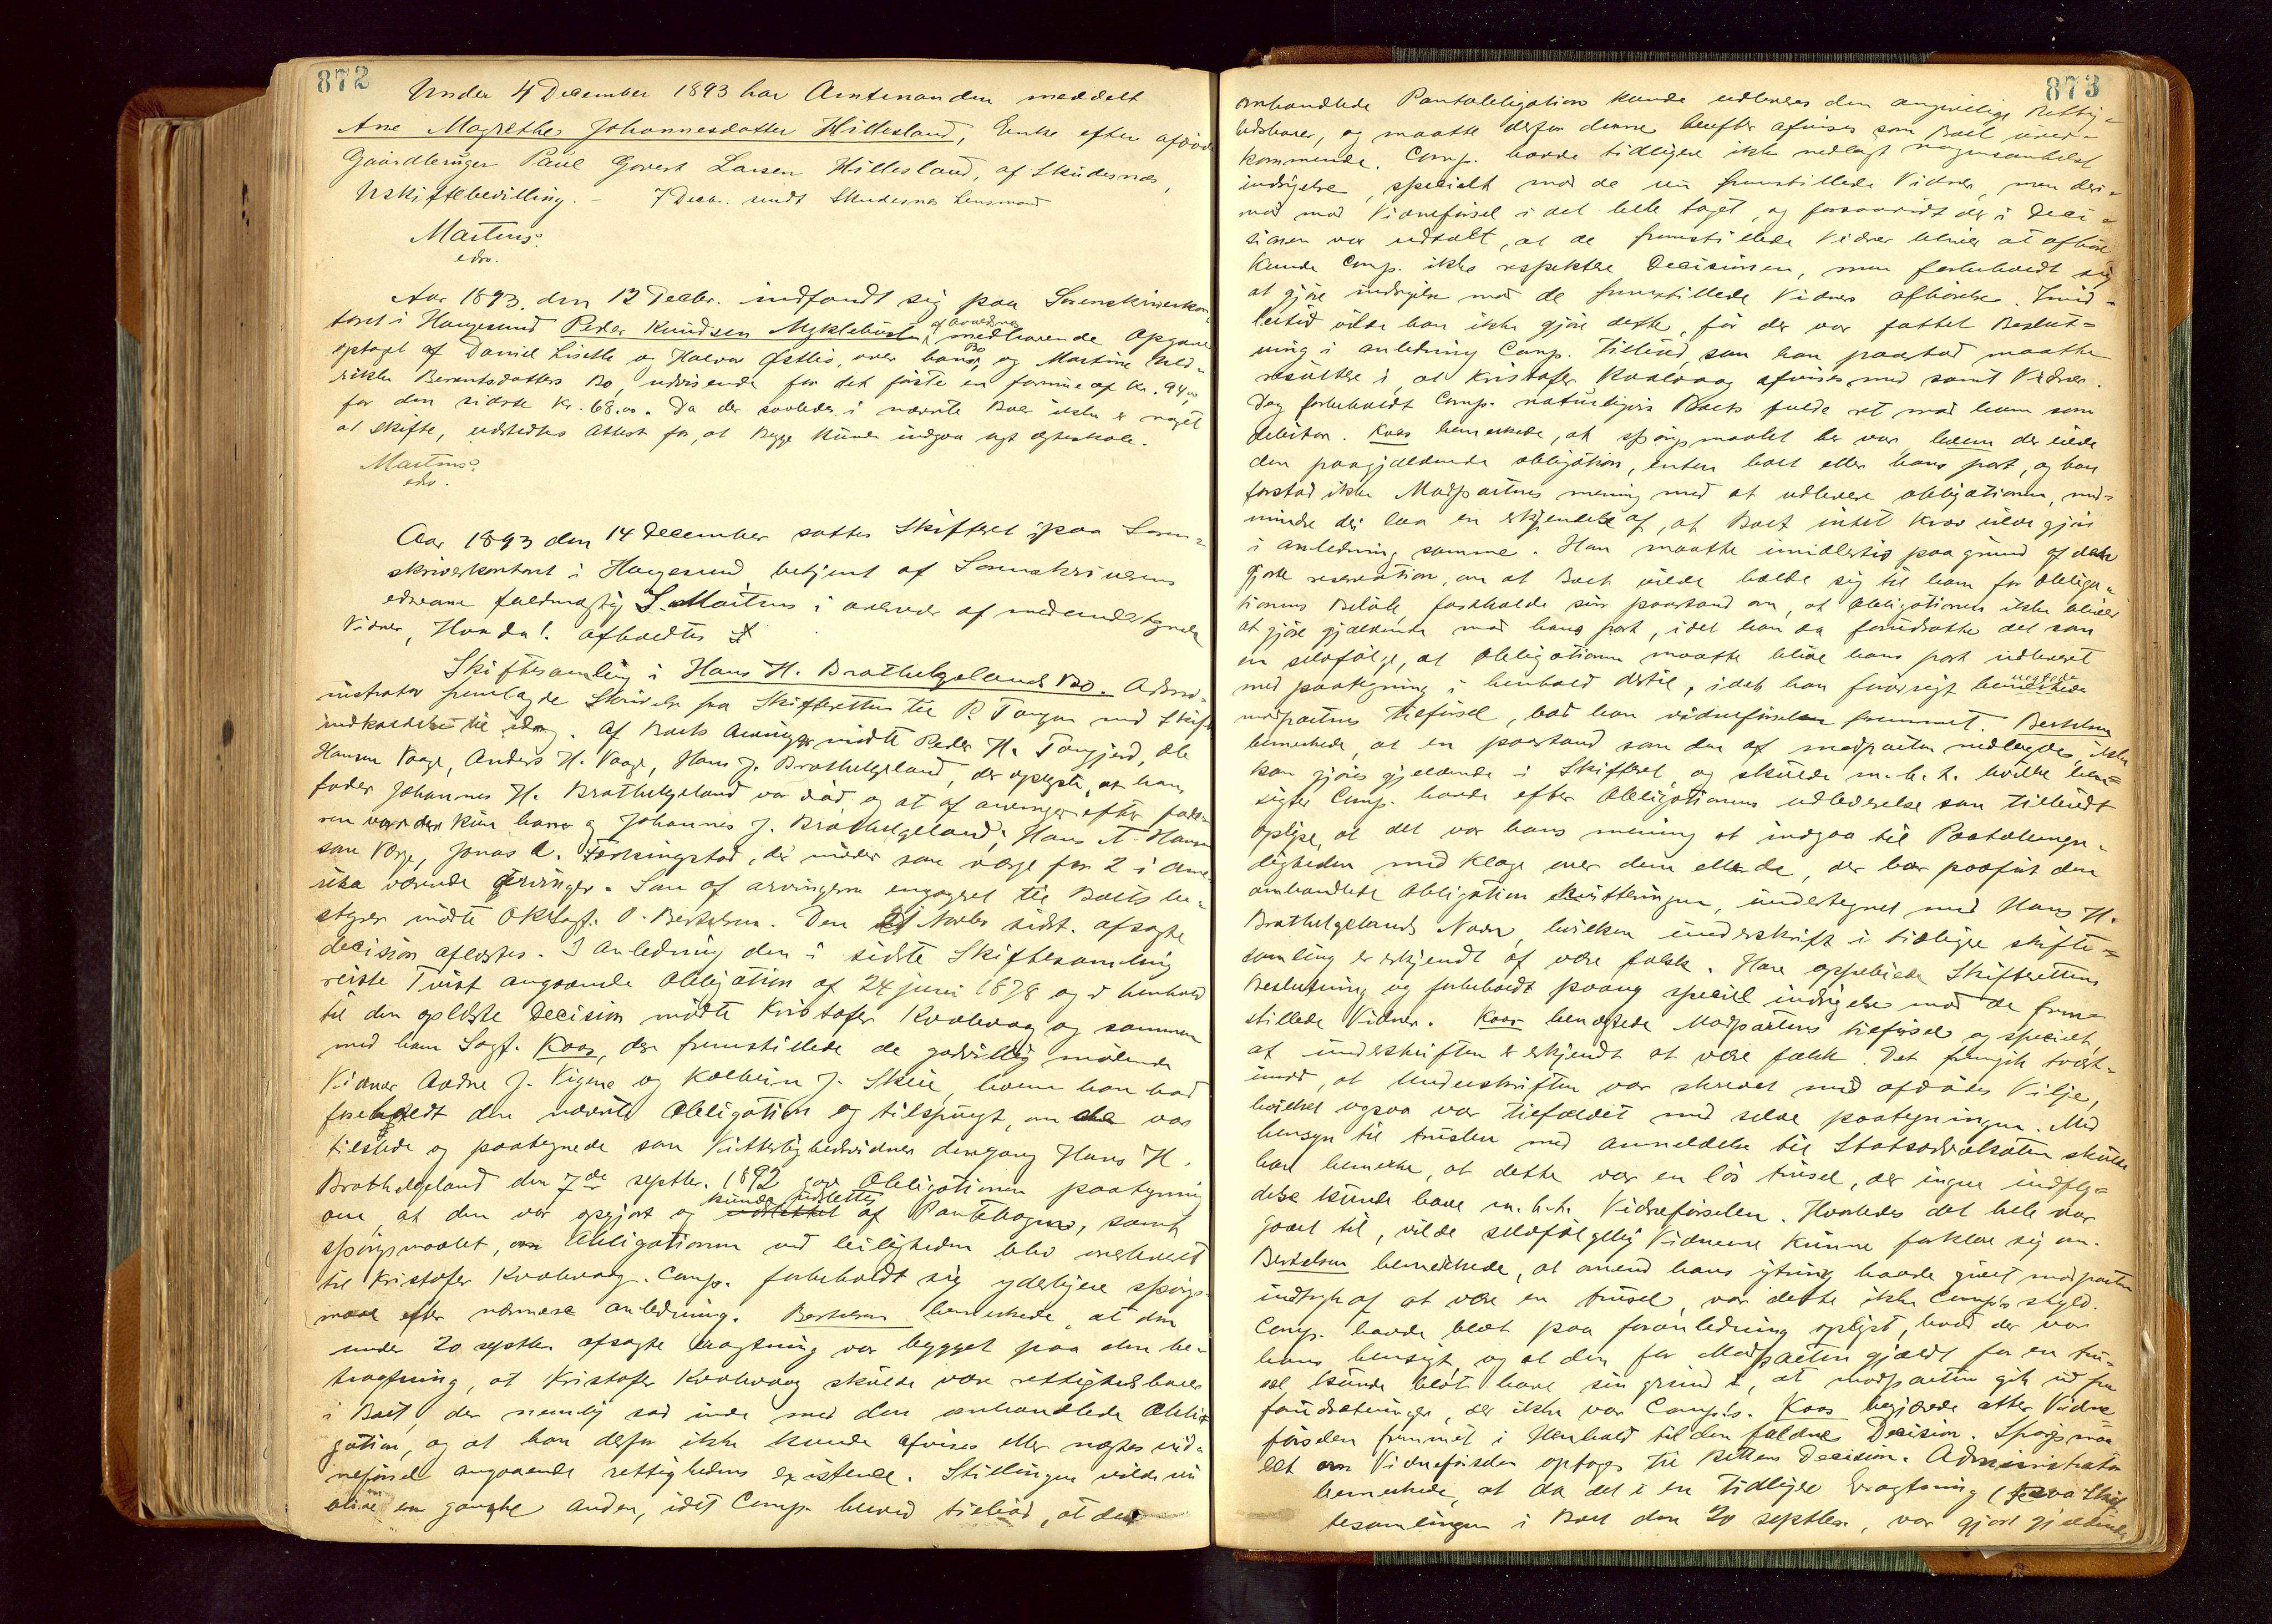 872
Under 4 December 1893 har Amtmanden meddelt
Ane Magrethe Johannesdatter Hillesland, Enke efter afdøde
Gaardbruger Paul Govert Larsen Hillesland, af Skudesnes,
Uskiftebevilling. – 7 Decbr. sendt Skudesnes Lensmand
Martens
edsv.
Aar 1893 den 12 Decbr. indfandt sig paa Sorenskriverkon-
toret i Haugesund Peder Knudsen Myklebust af Avaldsnes medhavende Opgave
optaget af Daniel Liselle og Halvor Østbø, over hans Bo og Martine Hed-
rikke Berentsdatters Bo, udvisende for det første en formue af Kr. 94,00
for den sidste Kr. 68.00. Da der saaledes i nævnte Boer ikke er noget
at skifte, udstedtes Attest for, at Begge kunde indgaa nyt ægteskab.
Martens
edsv.
Aar 1893 den 14 December sattes Skifteret paa Soren-
skriverkontoret i Haugesund, betjent af Sorenskriverens
edsvorne fuldmægtig S. Martens i overvær af medundertegnede
Vidner, Hvorda! afholdtes
Skiftesamling i Hans H. Brathelgelands Bo. Admi-
nistrator fremlagde Skrivelse fra Skifteretten til P. Tangen med Skifte
indkaldelse til idag. Af Boets Arvinger mødte Peder H. Tangjerd, Ole
Hansen Vaage, Anders H. Vaage, Hans J. Brathelgeland, der oplyste, at hans
fader Johannes H. Brathelgeland var død og at af arvinger efter fade-
ren var der kun han og Johannes J. Brathelgeland, Hans A. Hansen
som Værge, Jonas L. Ferkingstad, der møder som værge for 2 i Ame-
rika værende arvinger. Som af arvingerne engageret til Boets be-
styrer mødte Oksagf. O. Bertelsen. Den 21 Novbr sidst. afsagte
decision oplæstes. I Anledning den i sidste Skiftesamling
reiste Tvist angaaende Obligation af 24 juni 1878 og i henhold
til den oplæste Decision mødte Kristofer Kvalevaag og sammen
med ham Sagf. Kaas, der fremstillede de godvillig mødende
Vidner Aadne J. Vigene og Kolbein J. Skeie, hvem han bad
forelagt den nævnte Obligation og tilspurgt, om de var
tilstede og paategnede som Vitterlighedsvidner dengang Hans H.
Brathelgeland den 7de septbr. 1892 gav Obligationen paategning
om, at den var opgjort og kunde udslettes af Pantebogen, samt
spørgsmaalet, om Obligationen ved leiligheden blev overleveret
til Kristofer Kvalevaag. Comp. forbeholdt sig yderligere spørgs-
maal efter nærmere anledning. Bertelsen bemerkede, at den
under 20 septbr afsagte eragtning var bygget paa den be-
tragtning, at Kristofer Kvalevaag skulde være rettighedshaver
i Boet, der nemlig sad inde med den omhandlede Obli-
gation, og at han derfor ikke kunde afvises eller nægtes vid-
neførsel angaaende rettighedens existence. Stillingen vilde nu
blive en ganske anden, idet Comp. herved tilbød, at den
873
omhandlede Pantobligation kunde udleveres den angivelige Rettig-
hedshaver, og maatte derfor denne herefter afvises som Boet uved-
kommende. Comp. havde tidligere ikke nedlagt nogensomhelst
indsigelse, specielt mod de nu fremstillede Vidner, men der-
mod mod Vidneførsel i det hele taget, og forsaavidt der i Deci-
sionen var udtalt, at de fremstillede Vidner bliver at afhøre
kunde Comp. ikke respektere Decisionen, men forbeholdt sig
at gjøre indsigelse mod de fremstillede Vidners afhørelse. Imid-
lertid vilde han ikke gjøre dette, før der var fattet Beslut-
ning i anledning Comp. tilbud, som han paastod maatte
resultere i, at Kristofer Kvalevaag afvises med samt Vidner.
Dog forbeholdt Comp. naturligvis Boets fulde ret mod ham som
debitor. Kaas bemerkede, at spørgsmaalet her var, hvem der eiede
den paagjældende obligation, enten boet eller hans part, og han
forstod ikke Modpartens mening med at udlevere obligationen, med-
mindre der laa en erkjendelse af, at Boet intet krav vilde gjøre
i anledning samme. Han maatte imidlertid paa grund af den
gjorte reservation, om at Boet vilde holde sig til ham for obliga-
tionens Beløb, fastholde sin paastand om, at Obligationen ikke bliver
at gjøre gjældende mod hans part, idet han da forudsatte det som
en selvfølge, at Obligationen maatte blive hans part udleveret
med paategning i henhold dertil, idet han forøvrigt benegtede
modpartens tilførsel, bad han vidneførselen fremmet. Bertelsen
bemerkede, at en paastand som den af modparten nedlagde, ikke
kan gjøres gjeldende i Skifteret, og skulde m.h.t. hvilke hen-
sigter Comp. havde efter Obligationens udleverelse som tilbudt
oplyse, at det var hans mening at indgaa til Paatalemyn-
digheden med Klage over den eller de, der har paaført den
omhandlede Obligation kvitteringen, undertegnet med Hans H.
Brathelgelands Navn, hvilken underskrift i tidligere skifte-
samling er erkjendt at være falsk. Han oppebiede Skifterettens
Beslutning og forbeholdt paany speciel indsigelse mod de frem-
stillede Vidner. Kaas benægtede Modpartens tilførsel og specielt,
at underskriften er erkjendt at være falsk. Det fremgik tvært-
imod, at Underskriften var skrevet med afdødes Vilje,
hvilket ogsaa var tilfældet med selve paategningen. Med
hensyn til truslen med anmeldelse til Statsadvokaten skulde
han bemerke, at dette var en løs trusel, der ingen indfly-
delse kunde have m.h.t. Vidneførselen. Hvorledes det hele var
gaaet til, vilde selvfølgelig Vidnerne kunne forklare sig om.
Bertelsen bemerkede, at omend hans ytring havde givet modparten
indtryk af at være en trusel, var dette ikke Comp's skyld.
Comp. havde blot paa foranledning oplyst, hvad der var
hans hensigt, og at den for Modparten gjaldt for en tru-
sel kunde blot have sin grund i, at modparten gik ud fra
forudsætninger, der ikke var Comp's. Kaas begjærede atter Vidne-
førselen fremmet i Henhold til den faldne Decision. Spørgsmaa-
let om Vidneførselen optoges til Rettens Decision. Administrator
bemerkede, at da det i en tidligere Eragtning (fra Skif-
tesamlingen i Boet den 20 septbr., var gjort gjældende